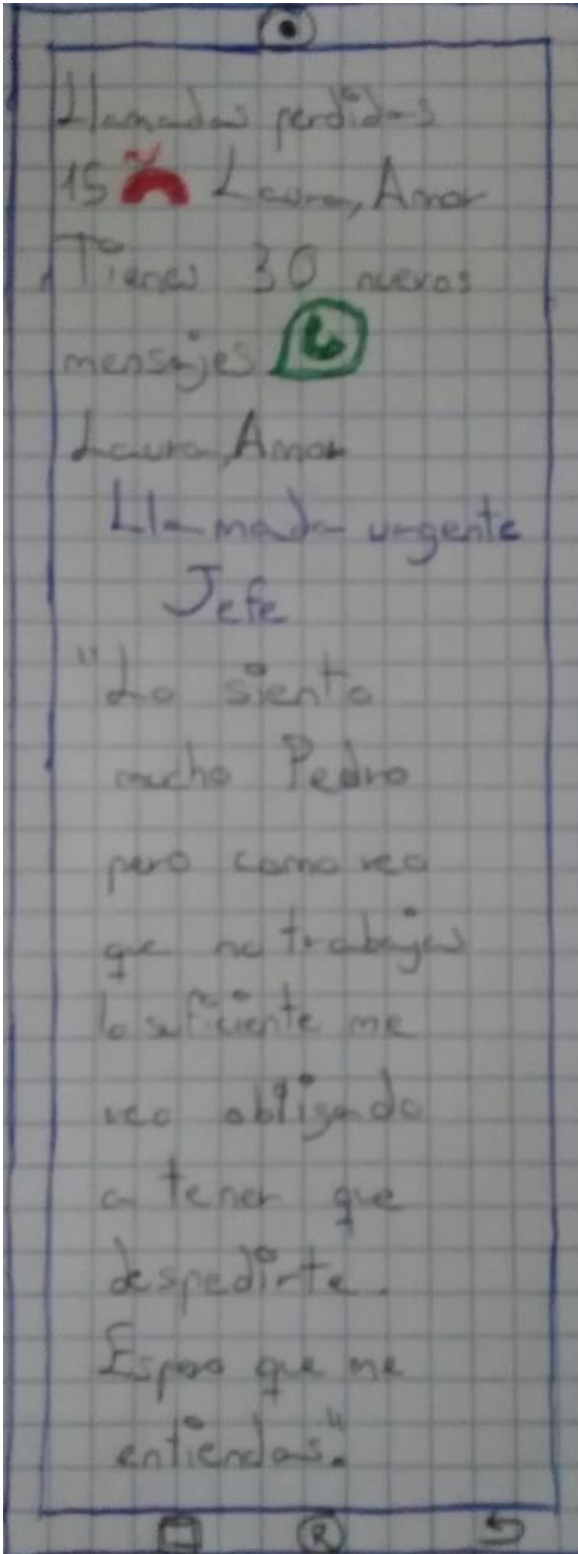 Llamadas perdidas
15 Laura, Amor
Tienes 30 nuevos
mensajes
Laura, Amor
Llamada urgente
Jefe
"Lo siento
mucho Pedro
pero como veo
que no trabajas
lo suficiente me
veo obligado
a tener que
despedirte.
Espero que me
entiendas".